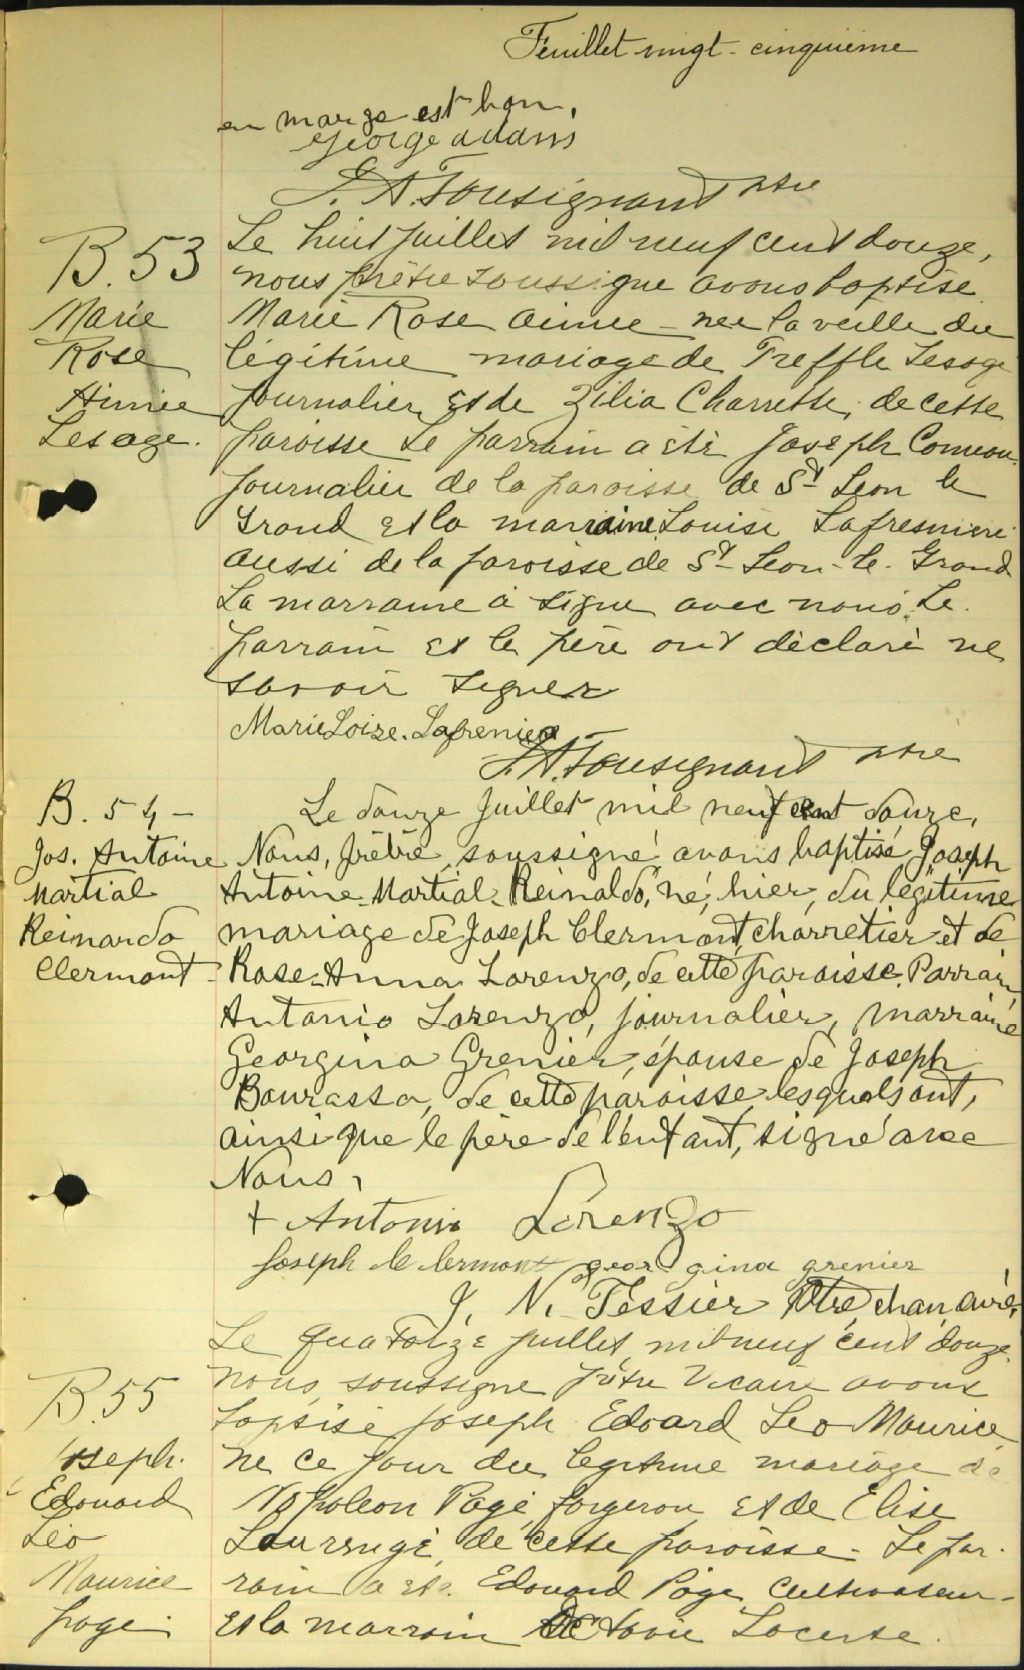 Feuillet vingt-cinquième
en marge est bon,
George adams
J. A. Tousignant ptre
B. 53
Marie
Rose
Aimée
Lesage.
Le huit juillet mil neuf cent douze,
nous prêtre soussigné avons baptisé
Marie Rose aimee - nee la veille du
légitime mariage de Treffle Lesage
journalier, et de Zélia Charrette, de cette
paroisse Le parrain a été Joseph Comeau
journalier de la paroisse de St Leon le
Grand et la marraine Louise Lafresniere
aussi de la paroisse de St Leon-le-Grand
La marraine a signe avec nous. Le
parrain et le père ont déclaré ne
savoir signer
Marie Loize. Lafreniere
J. A. Tousignant ptre
B. 54 -
Jos. Antoine
Martial
Reinardo
Clermont -
Le douze Juillet mil neuf cent douze,
Nous, prêtre soussigné avons baptisé Joseph
Antoine Martial Reinaldo, né, hier, du légitime
mariage de Joseph Clermont, charretier et de
Rose-Anna Lorenzo, de cette paroisse. Parrain
Antonio Lorenzo, journalier, marraine
Georgina Grenier, épouse de Joseph
Bourassa, de cette paroisse, lesquels ont,
ainsi que le père de l'enfant, signé avec
Nous,
+ Antonio Lorenzo
Joseph Clermont georgina grenier
J. N. Tessier Ptre, chan, curé,
B. 55
Joseph.
Edouard
Léo
Maurice
page.
Le quatorze juillet mil neuf cent douze
nous soussigne prêtre vicaire avons
baptisé Joseph Edoard Leo Maurice
ne ce jour du legitime mariage de
Napoleon Pagé forgeron et de Elise
de cette paroisse - Le par-
rain a ete Edouard Page cultivateur -
et la marrain Octavie Lacerte.